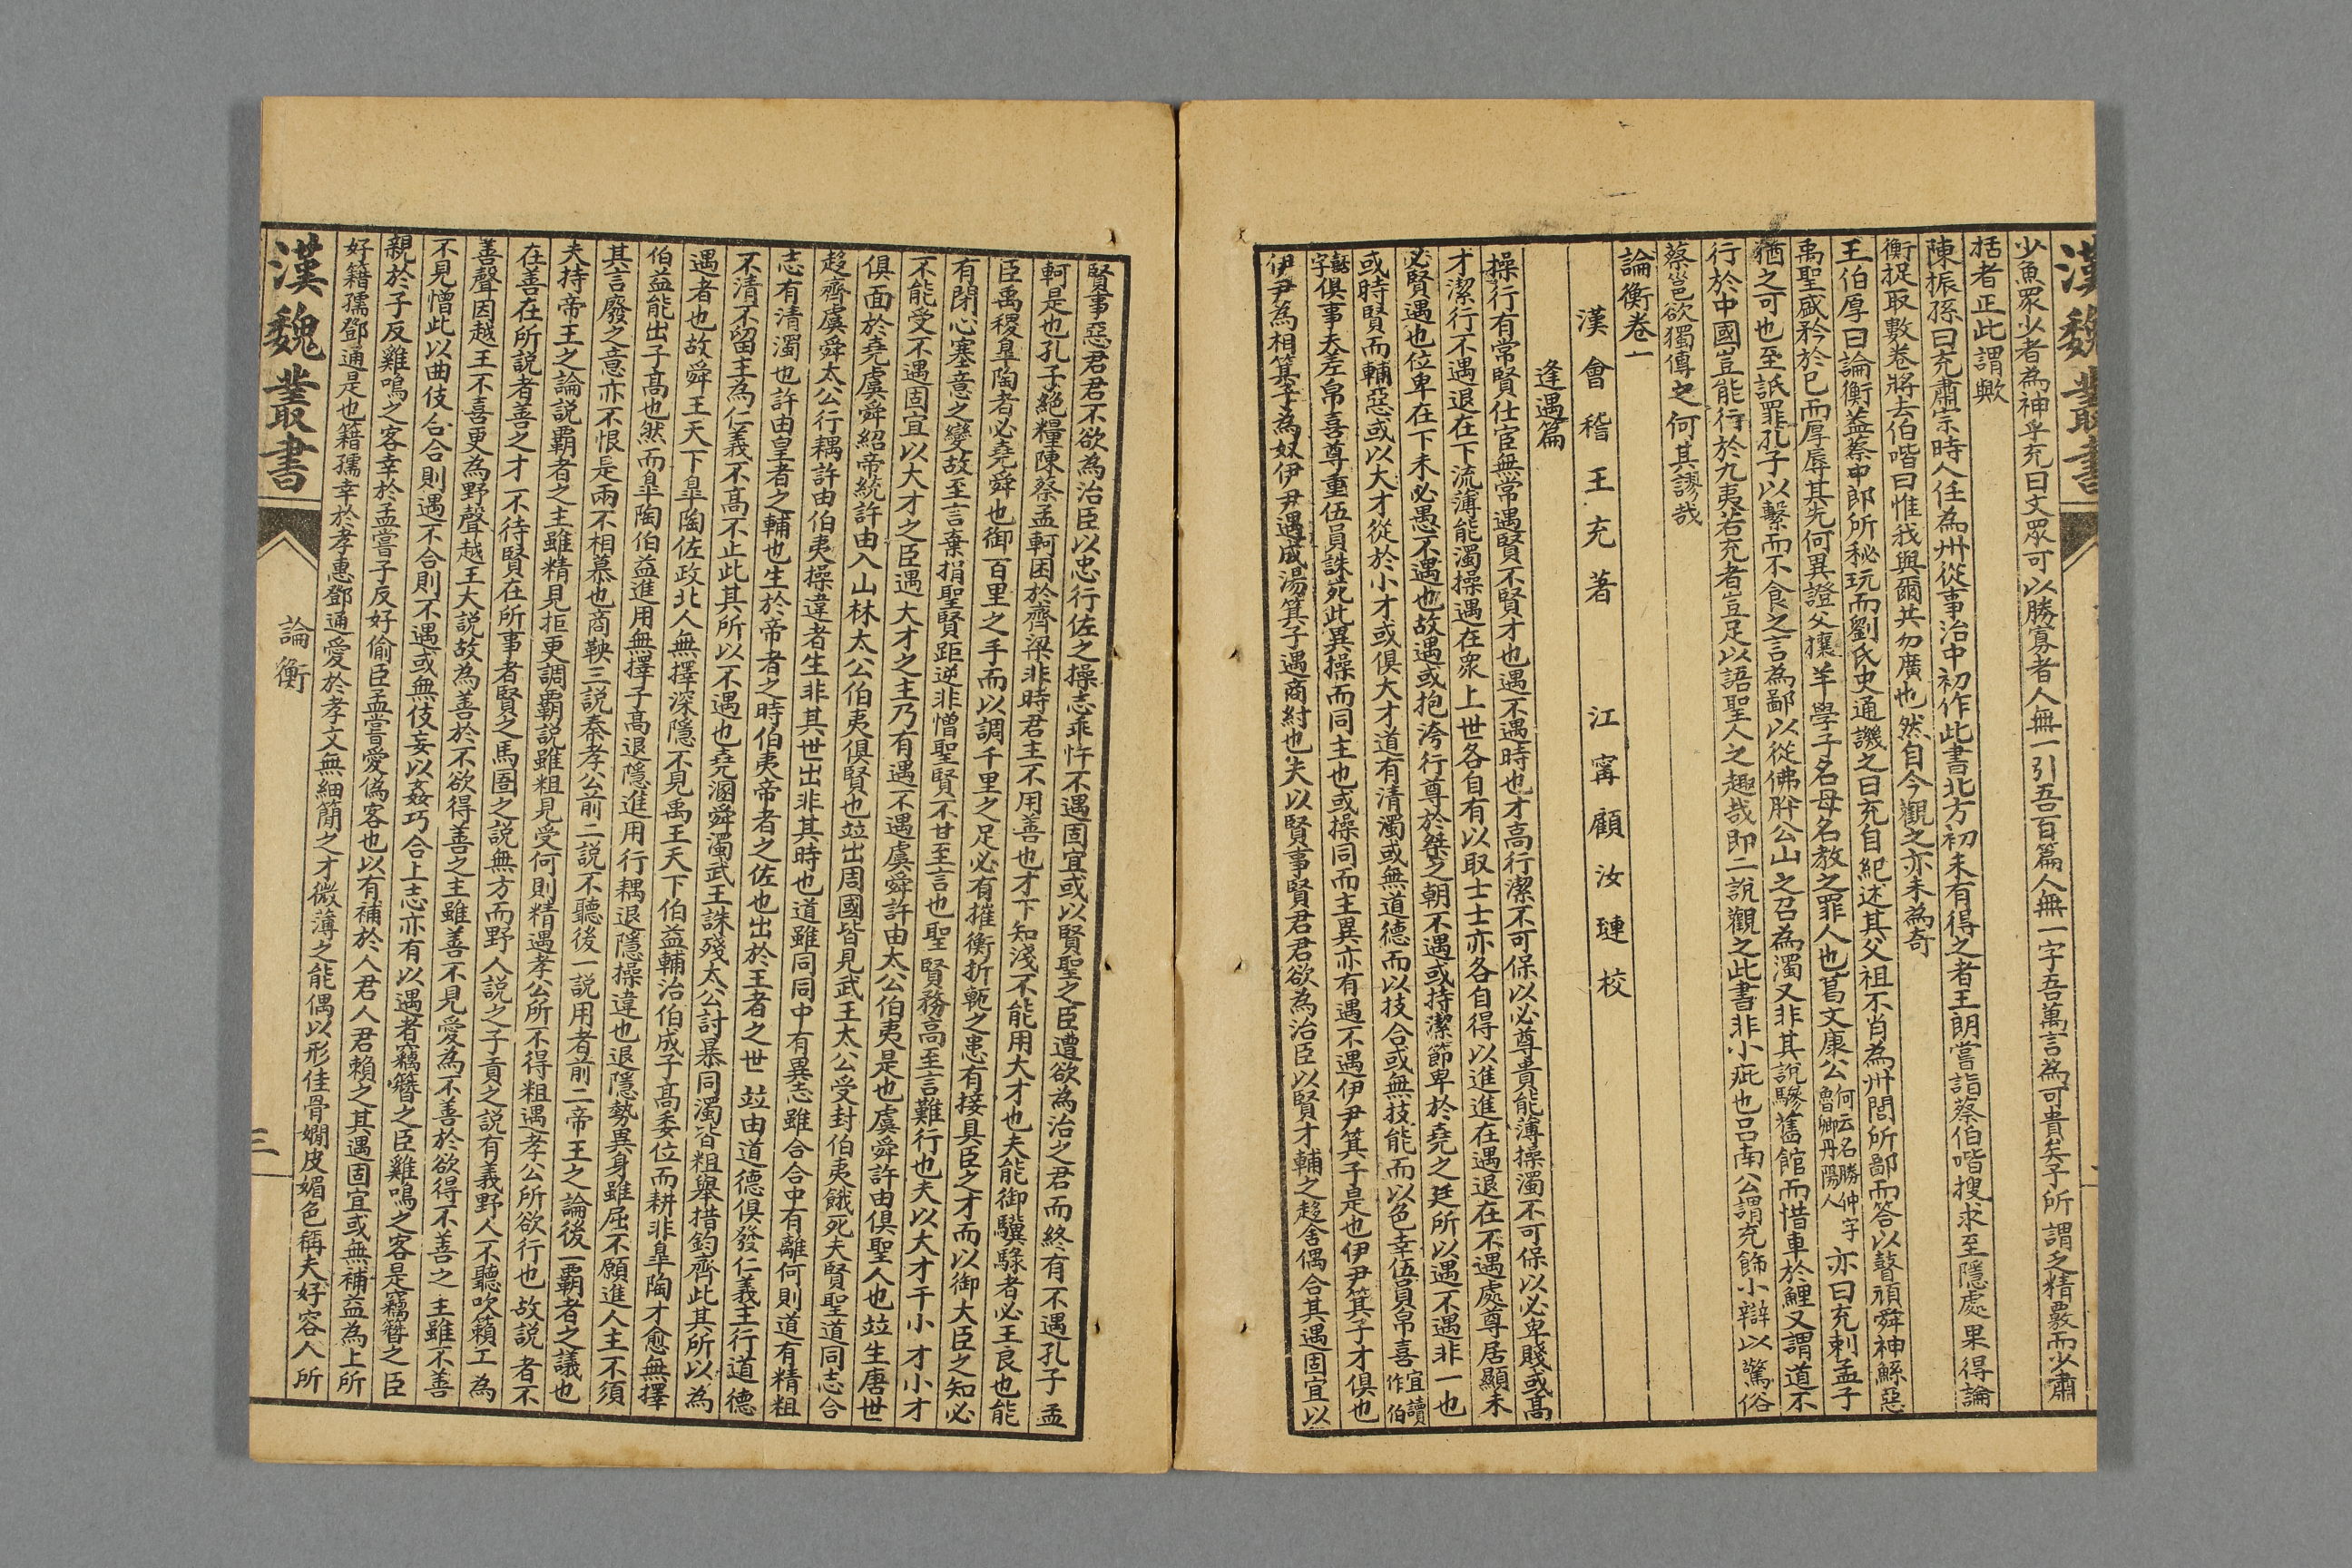 漢魏叢書
少魚眾少者為神乎充曰文眾可以勝寡者人無一引吾百篇人無一字吾萬言為可貴矣予所謂乏精覈而少肅
括者正此謂歟
陳振孫曰充肅宗時人仕為州從事治中初作此書北方初未有得之者王朗嘗詣蔡伯喈搜求至隱處果得論
衡捉取數卷將去伯喈曰惟我與爾共勿廣也然自今觀之亦未為奇
王伯厚曰論衡蓋蔡中郎所秘玩而劉氏史通譏之曰充自紀述其父祖不肖為州閭所鄙而答以瞽頑舜神鯀惡
禹聖盛矜於己而厚辱其先何異證父攘羊學子名母名教之罪人也葛文康公何云名勝仲字魯卿丹陽人亦曰充刺孟子
猶之可也至詆罪孔子以繫而不食之言為鄙以從佛肸公山之召為濁又非其說驂舊館而惜車於鯉又謂道不
行於中國豈能行於九夷若充者豈足以語聖人之趣哉即二說觀之此書非小疵也呂南公謂充飾小辯以驚俗
蔡邕欲獨傳之何其謬哉
論衡卷一
漢會稽王充著 江甯顧汝璉校
逢遇篇
操行有常賢仕宦無常遇賢不賢才也遇不遇時也才高行潔不可保以必尊貴能薄操濁不可保以必卑賤或高
才潔行不遇退在下流薄能濁操遇在眾上世各自有以取士士亦各自得以進進在遇退在不遇處尊居顯未
必賢遇也位卑在下未必愚不遇也故遇或抱洿行尊於桀之朝不遇或持潔節卑於堯之廷所以遇不遇非一也
或時賢而輔惡或以大才從於小才或俱大才道有清濁或無道德而以技合或無技能而以色幸伍員帛喜宜讀作伯
嚭字俱事夫差帛喜尊重伍員誅死此異操而同主也或操同而主異亦有遇不遇伊尹箕子是也伊尹箕子才俱也
伊尹為相箕子為奴伊尹遇成湯箕子遇商紂也夫以賢事賢君君欲為治臣以賢才輔之趍舍偶合其遇固宜以
賢事惡君君不欲為治臣以忠行佐之操志乖忤不遇固宜或以賢聖之臣遭欲為治之君而終有不遇孔子孟
軻是也孔子絕糧陳蔡孟軻困於齊梁非時君主不用善也才下知淺不能用大才也夫能御驥騄者必王良也能
臣禹稷皐陶者必堯舜也御百里之手而以調千里之足必有摧衡折軛之患有接具臣之才而以御大臣之知必
有閉心塞意之變故至言棄捐聖賢距逆非憎聖賢不甘至言也聖賢務高至言難行也夫以大才干小才小才
不能受不遇固宜以大才之臣遇大才之主乃有遇不遇虞舜許由太公伯夷是也虞舜許由俱聖人也竝生唐世
俱面於堯虞舜紹帝統許由入山林太公伯夷俱賢也竝出周國皆見武王太公受封伯夷餓死夫賢聖道同志合
趍齊虞舜太公行耦許由伯夷操違者生非其世出非其時也道雖同同中有異志雖合合中有離何則道有精粗
志有清濁也許由皇者之輔也生於帝者之時伯夷帝者之佐也出於王者之世竝由道德俱發仁義主行道德
不清不留主為仁義不高不止此其所以不遇也堯溷舜濁武王誅殘太公討暴同濁皆粗舉措鈞齊此其所以為
遇者也故舜王天下皐陶佐政北人無擇深隱不見禹王天下伯益輔治伯成子高委位而耕非皐陶才愈無擇
伯益能出子高也然而皐陶伯益進用無擇子高退隱進用行耦退隱操違也退隱勢異身雖屈不願進人主不須
其言廢之意亦不恨是兩不相慕也商鞅三說秦孝公前二說不聽後一說用者前二帝王之論後一霸者之議也
夫持帝王之論說霸者之主雖精見拒更調霸說雖粗見受何則精遇孝公所不得粗遇孝公所欲行也故說者不
在善在所說者善之才不待賢在所事者賢之馬圄之說無方而野人說之子貢之說有義野人不聽吹籟工為
善聲因越王不喜更為野聲越王大說故為善於不欲得善之主雖善不見愛為不善於欲得不善之主雖不善
不見憎此以曲伎合合則遇不合則不遇或無伎妄以姦巧合上志亦有以遇者竊簪之臣雞鳴之客是竊簪之臣
親於子反雞鳴之客幸於孟嘗子反好偷臣孟嘗愛偽客也以有補於人君人君賴之其遇固宜或無補益為上所
好籍孺鄧通是也籍孺幸於孝惠鄧通愛於孝文無細簡之才微薄之能偶以形佳骨嫺皮媚色稱夫好容人所
漢魏叢書
論衡
三